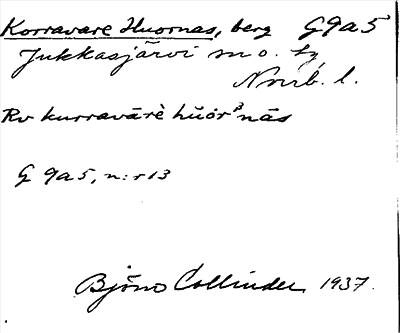 Korravare Huornas, berg G9a5
Jukkasjärvi sn o. tg
Norrb. l.
Rv kurravārè hŭór³nās
G 9a5, n:r 13
Björn Collinder 1937.